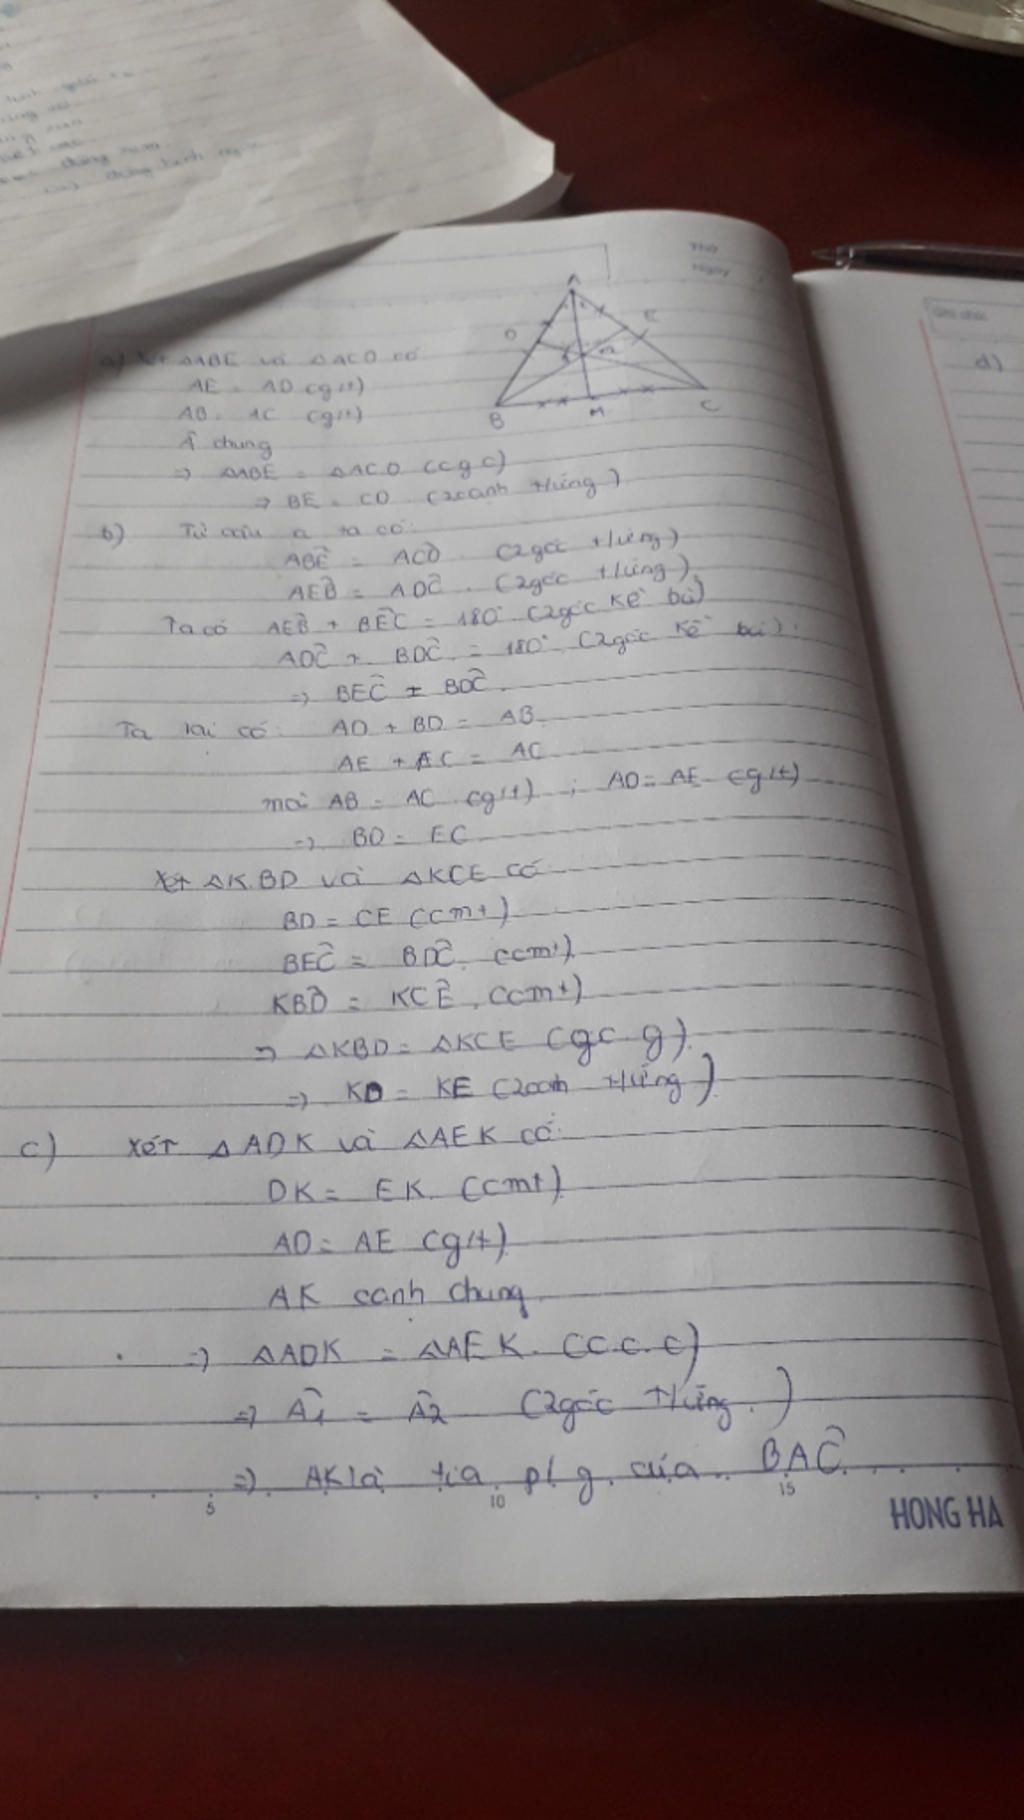 Thứ
Ngày
A
D
E
B
M
C
a) Xét ΔABE và ΔACD có
AE = AD (g/t)
AB = AC (g/t)
Â chung
=> ΔABE = ΔACD (c g c)
=> BE = CD (2 cạnh t/ứng)
b) Từ câu a ta có:
ABÊ = ACD̂ (2 góc t/ứng)
AEB̂ = ADĈ (2 góc t/ứng)
Ta có AEB̂ + BEĈ = 180° (2 góc kề bù)
ADĈ + BDĈ = 180° (2 góc kề bù)
=> BEĈ = BDĈ
Ta lại có: AD + BD = AB
AE + EC = AC
mà AB = AC (g/t) ; AD = AE (g/t)
=> BD = EC
Xét ΔKBD và ΔKCE có
BD = CE (cmt)
BEĈ = BDĈ (cmt)
KBD̂ = KCÊ (cmt)
=> ΔKBD = ΔKCE (g c g)
=> KD = KE (2 cạnh t/ứng)
c) Xét ΔADK và ΔAEK có:
DK = EK (cmt)
AD = AE (g/t)
AK cạnh chung
=> ΔADK = ΔAEK (c.c.c)
=> Â1 = Â2 (2 góc t/ứng)
=> AK là tia p/g của BAĈ
5 10 15
HONG HA
Ghi chú
d)